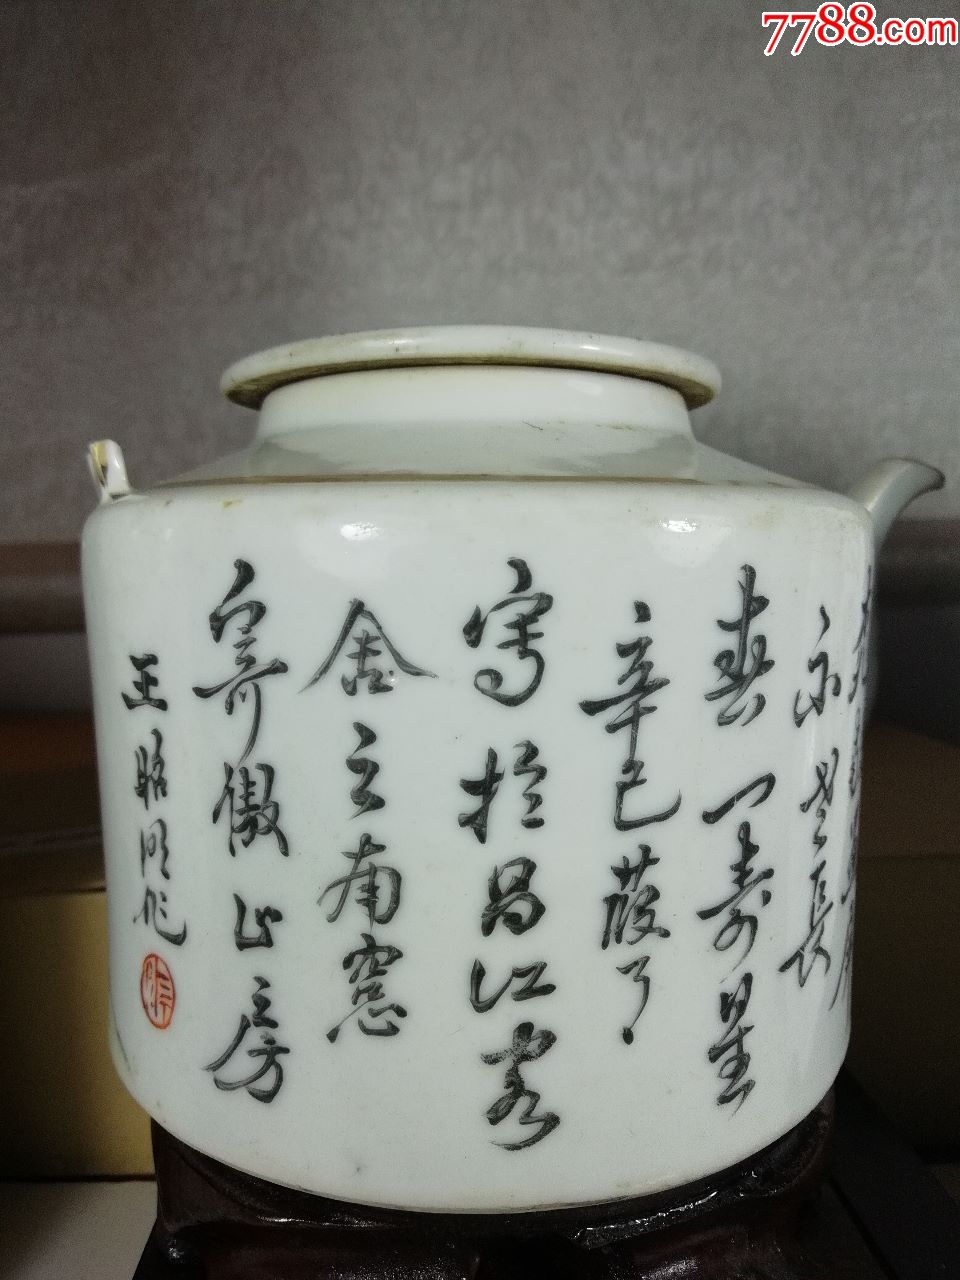 7788.com
永
長
春一壽星
辛巳葭了
寫於昌江客
舍之南窓
寄傲山房
王昭明作